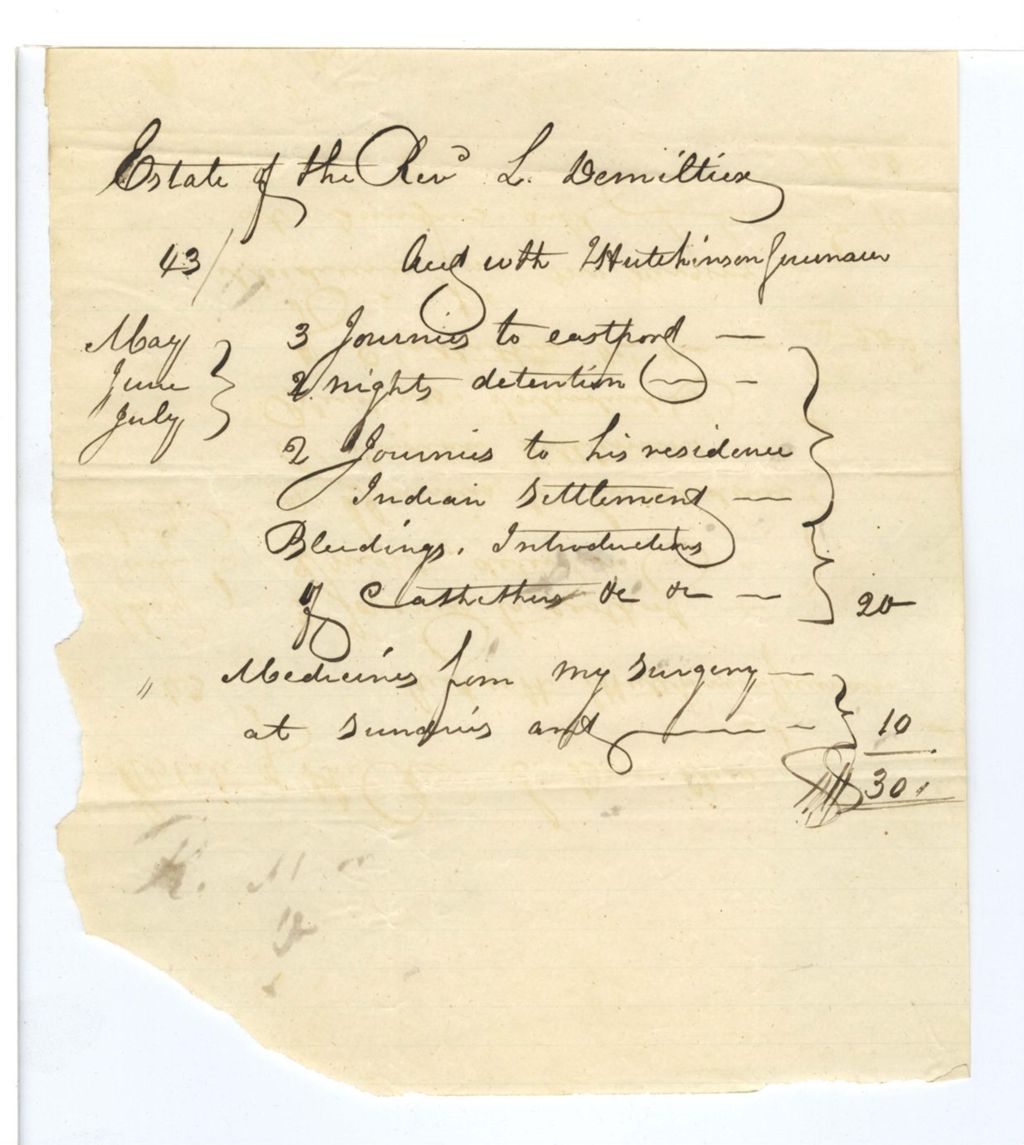 Estate of the Revd L. Demiltier
43/ Acct with Hutchinson
May 3 Journies to eastport —
June 2 nights detention — -
July
2 Journies to his residence
Indian Settlement —
Bleedings, Introductions
of Cathethers &c &c — 20
" Medicines from my Surgery —
at Sundries and — 10
30